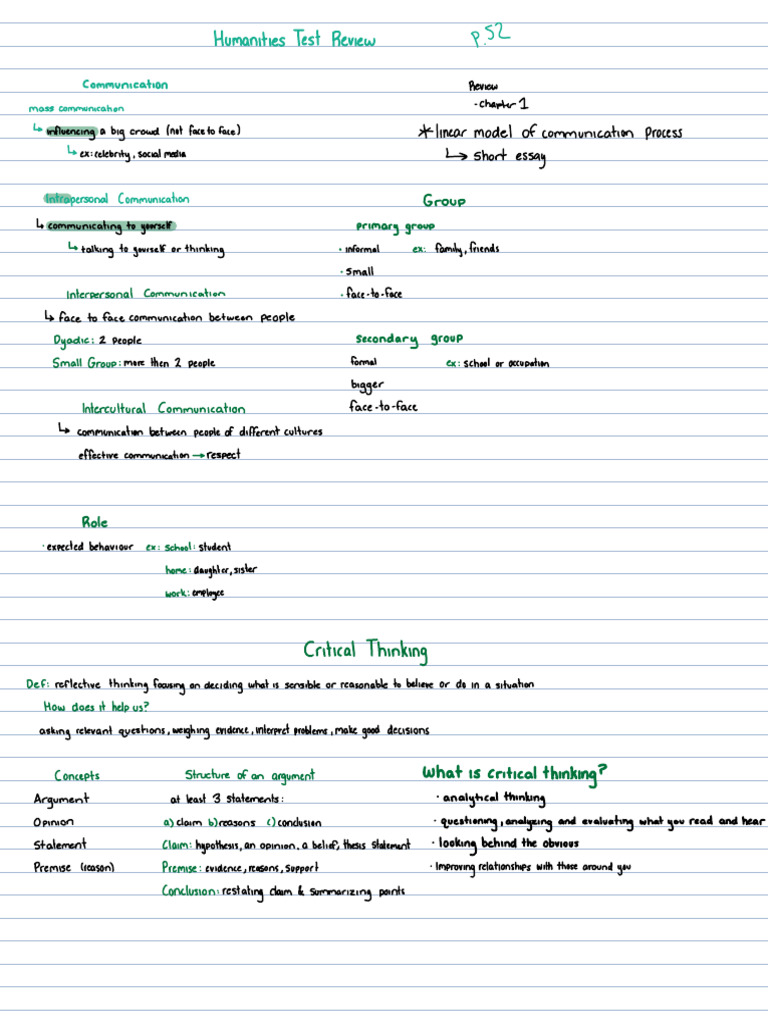 Humanities Test Review
p.52
Communication
mass communication
↳ influencing a big crowd (not face to face)
↳ ex: celebrity, social media
Review
· chapter 1
* linear model of communication process
↳ short essay
Intrapersonal Communication
↳ communicating to yourself
↳ talking to yourself or thinking
Interpersonal Communication
↳ face to face communication between people
Dyadic: 2 people
Small Group: more then 2 people
Intercultural Communication
↳ communication between people of different cultures
effective communication → respect
Group
primary group
· informal ex: family, friends
· small
· face-to-face
secondary group
formal ex: school or occupation
bigger
face-to-face
Role
· expected behaviour ex: school: student
home: daughter, sister
work: employee
Critical Thinking
Def: reflective thinking focusing on deciding what is sensible or reasonable to believe or do in a situation
How does it help us?
asking relevant questions, weighing evidence, interpret problems, make good decisions
Concepts
Argument
Opinion
Statement
Premise (reason)
Structure of an argument
at least 3 statements:
a) claim b) reasons c) conclusion
Claim: hypothesis, an opinion, a belief, thesis statement
Premise: evidence, reasons, support
Conclusion: restating claim & summarizing points
What is critical thinking?
· analytical thinking
· questioning, analyzing and evaluating what you read and hear
· looking behind the obvious
· Improving relationships with those around you